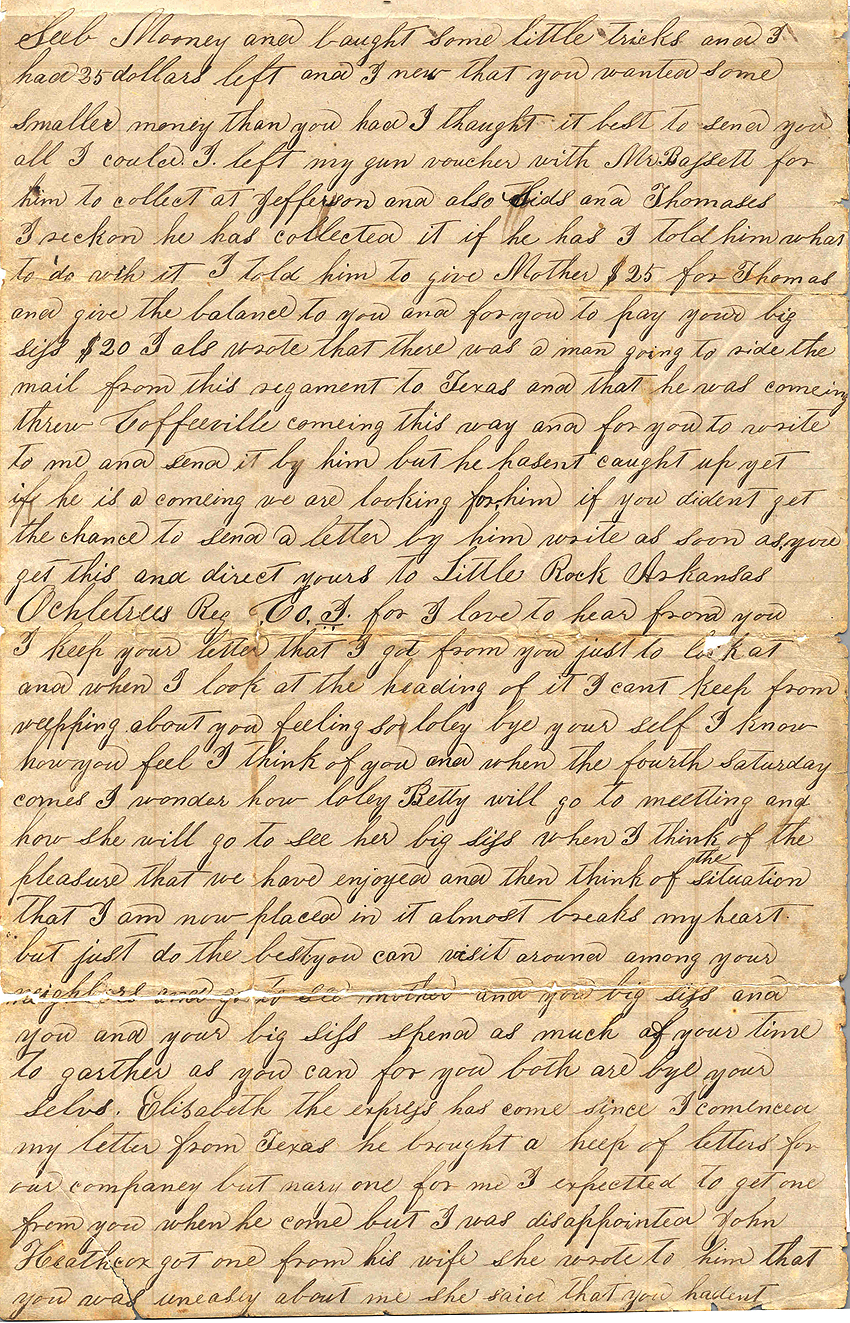 Seeb Mooney and baught some little tricks and I
had 35 dollars left and I new that you wanted some
smaller money than you had I thaught it best to send you
all I could. I. left my gun voucher with Mr Bassett for
him to collect at Jefferson and also Sids and Thomases
I reckon he has collected it if he has I told him what
to do with it I told him to give Mother $25 for Thomas
and give the balance to you and for you to pay your big
siss $20 I als wrote that there was a man going to ride the
mail from this regament to Texas and that he was comeing
threw Coffeeville comeing this way and for you to write
to me and send it by him but he hasent caught up yet
if he is a comeing we are looking for him if you dident get
the chance to send a letter by him write as soon as you
get this and direct yours to Little Rock Arkansas
Ochletrees Reg Co. I. for I love to hear from you
I keep your letter that I got from you just to look at
and when I look at the heading of it I cant keep from
weepping about you feeling so loley bye your self I know
how you feel I think of you and when the fourth saturday
comes I wonder how loley Betty will go to meetting and
how she will go to see her big siss when I think of the
pleasure that we have enjoyed and then think of the situation
that I am now placed in it almost breaks my heart
but just do the best you can visit around among your
neighbors and go to see mother and you big siss and
you and your big siss spend as much of your time
to garther as you can for you both are bye your
selvs. Elisabeth the express has come since I comenced
my letter from Texas he brought a heep of letters for
our companey but nary one for me I expectted to get one
from you when he come but I was disappointed John
Heathcox got one from his wife she wrote to him that
you was uneasy about me she said that you hadent